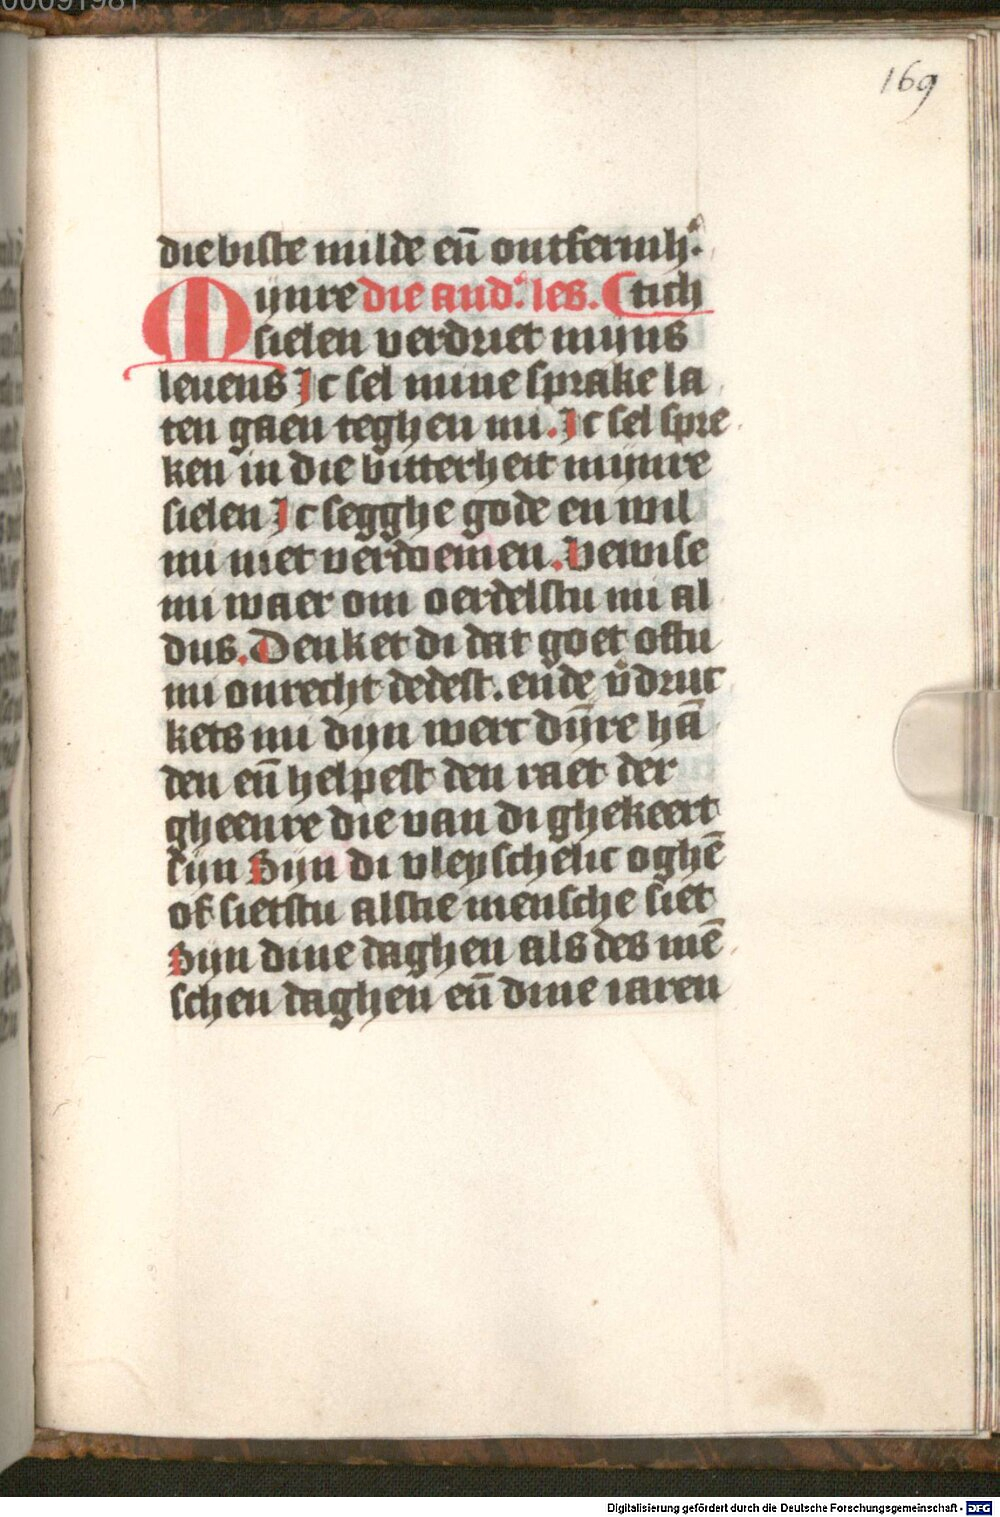 00091981
169
die biste milde en̄ ontfermh⁹.
Mijnre die and⁹. les. (tich
sielen verdriet mijns
leuens Ic sel mine sprake la
ten gaen teghen mi. Ic sel spre
ken in die bitterheit mijnre
sielen Ic segghe gode en wil
mi niet verdoemen. Bewise
mi waer om oerdelstu mi al
dus. Denket di dat goet oftu
mi onrecht dedest. ende v̄druc
kets mi dijn werc dijn̄re hā
den en̄ helpest den raet der
gheenre die van di ghekeert
sijn Sijn di vleyschelic oghē
of sietstu alstie mensche siet
Sijn dine daghen als des mē
schen daghen en̄ dine iaren
Digitalisierung gefördert durch die Deutsche Forschungsgemeinschaft - DFG